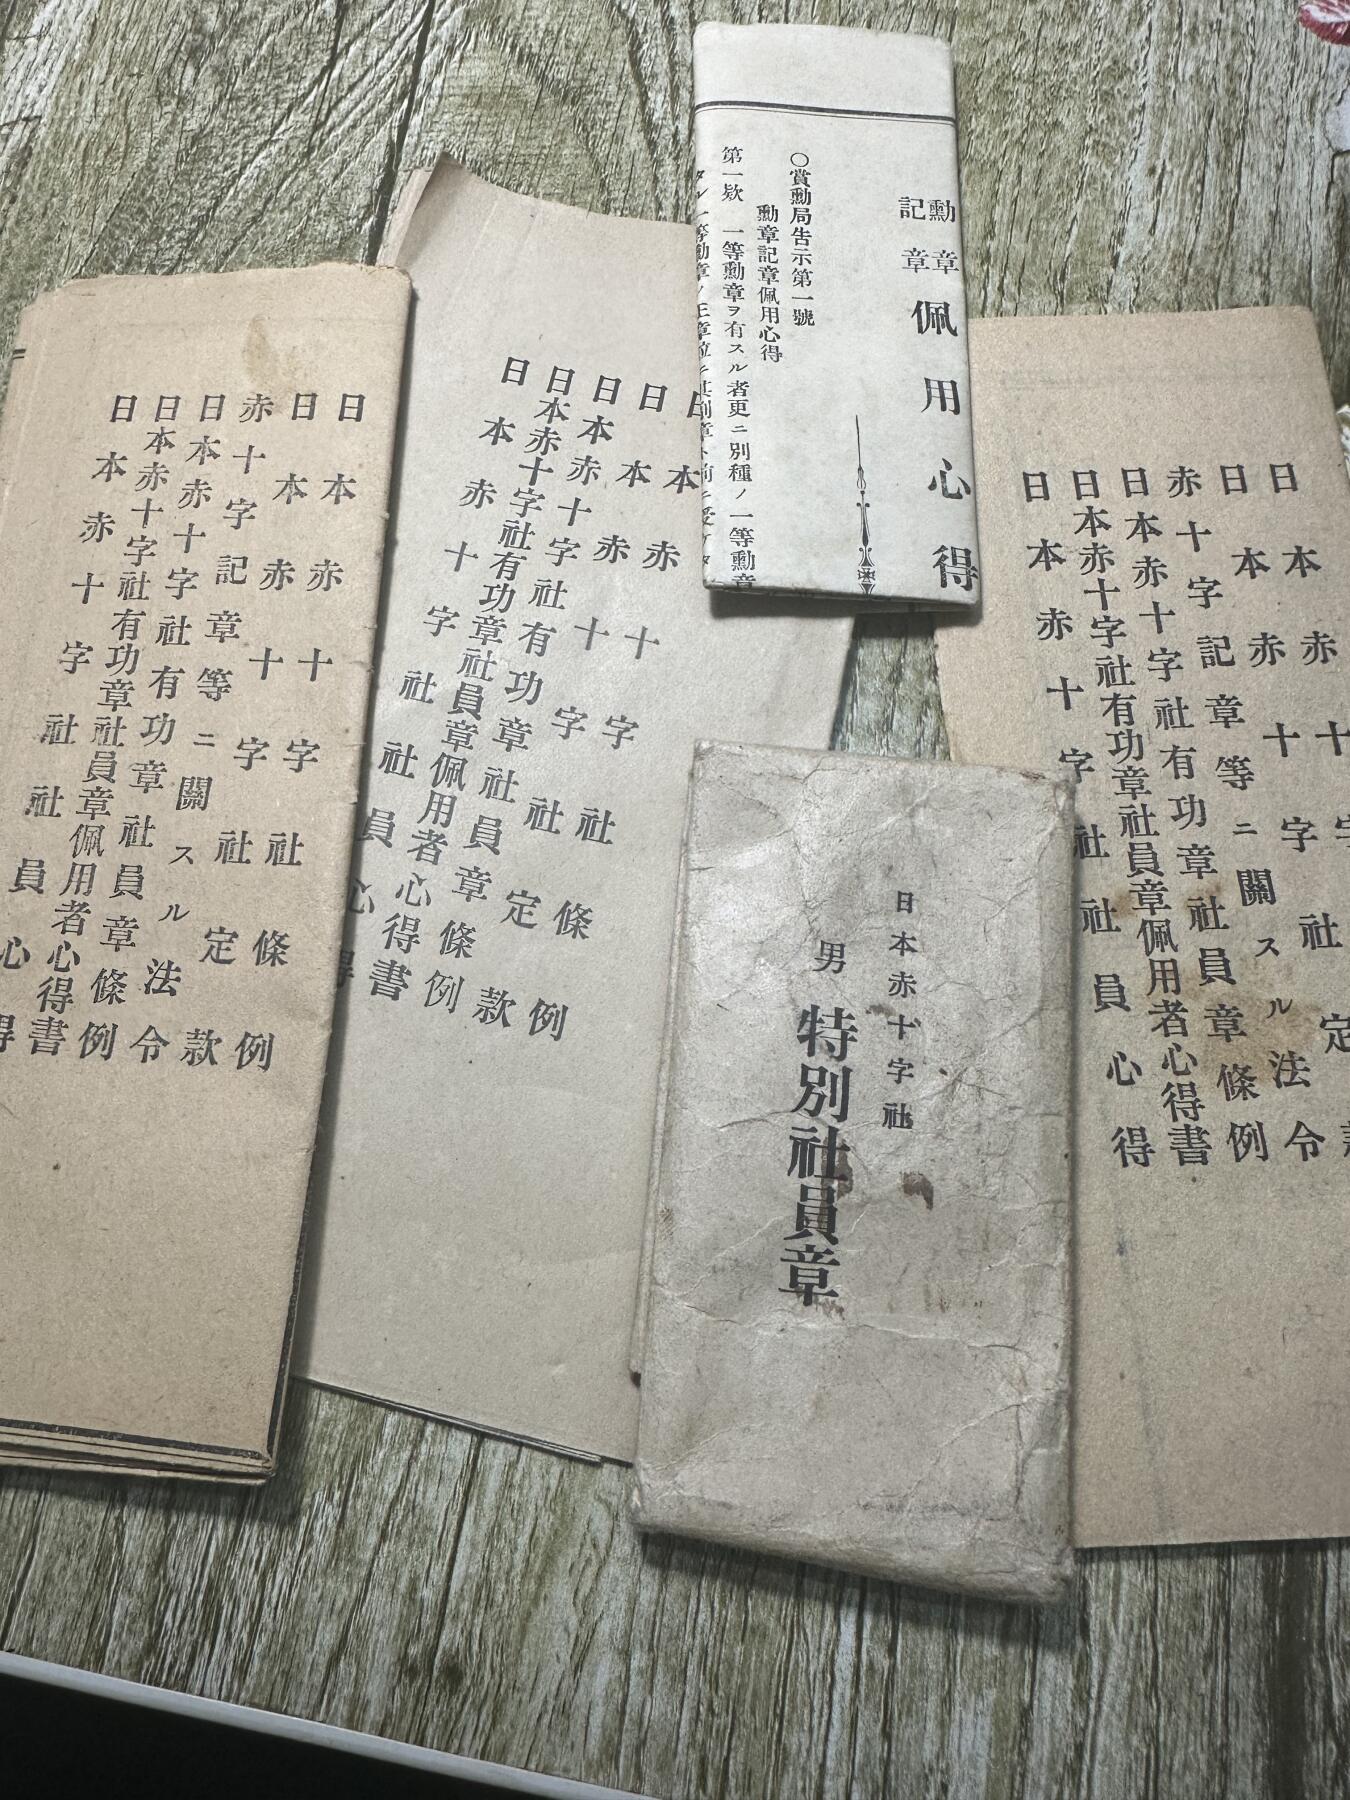 勳章
記章
佩用心得
○賞勳局告示第一號
勳章記章佩用心得
第一欵 一等勳章ヲ有スル者更ニ別種ノ一等勳章
日本赤十字社條例
日本赤十字社定款
赤十字記章等ニ關スル法令
日本赤十字社有功章社員章條例
日本赤十字社有功章社員章佩用者心得書
日本赤十字社社員心得
日本赤十字社條例
日本赤十字社定款
日本赤十字社有功章社員章條例
日本赤十字社有功章社員章佩用者心得書
日本赤十字社社員心得
日本赤十字社
男 特別社員章
日本赤十字
日本赤十字社定
赤十字記章等ニ關スル法令
日本赤十字社有功章社員章條例
日本赤十字社有功章社員章佩用者心得書
日本赤十字社社員心得